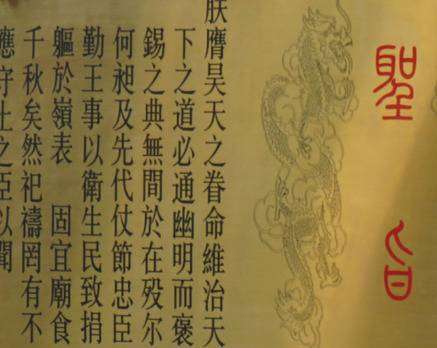 聖旨
朕膺昊天之眷命維治天
下之道必通幽明而褒
錫之典無間於在歿尔
何昶及先代仗節忠臣
勤王事以衛生民致捐
軀於嶺表　固宜廟食
千秋矣然祀禱罔有不
應守土之臣以聞